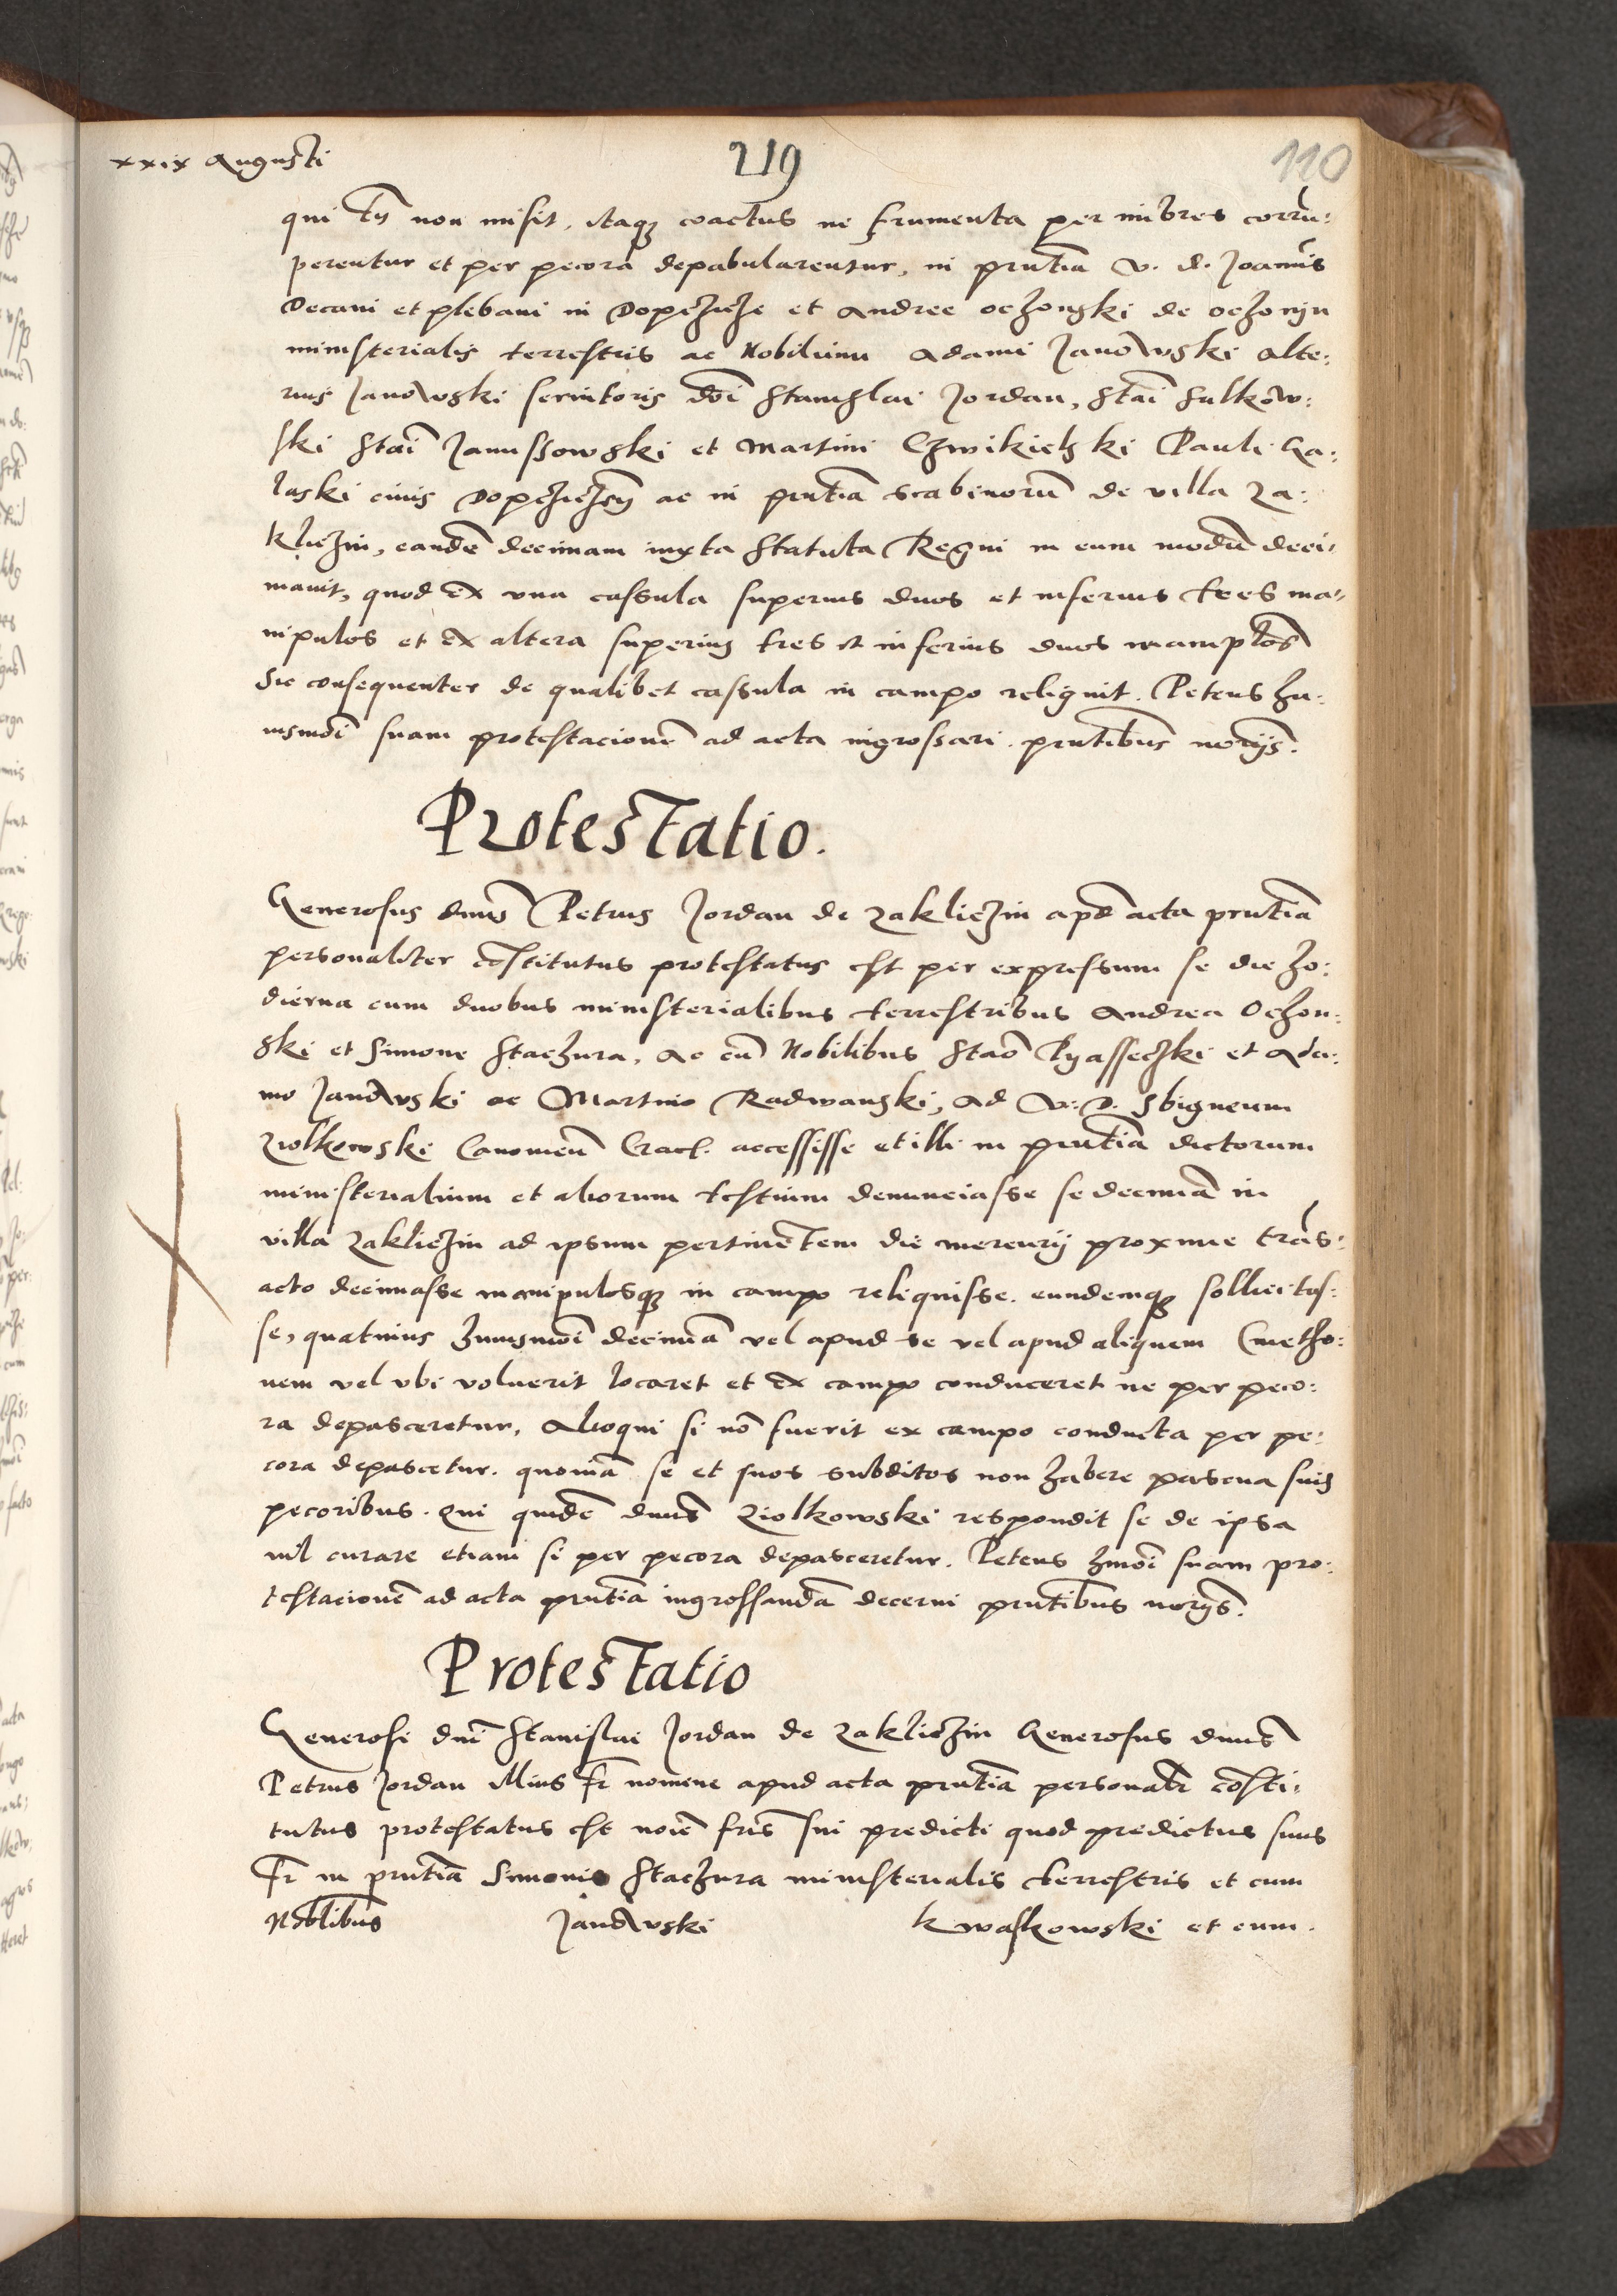 xxix Augusti
219
110
qui tñ non misit, itaqꝫ coactus ne frumenta per imbres corru:
perentur et per pecora depabularentur, in prntia v. d. Joannis
Decani et plebani in Dopczicze et Andree oczonski de oczonÿn
ministerialis terrestris ac Nobilium Adami Janowski alte:
rius Janowski servitoris dñi Stanislai Jordan, Stai Sulkow:
ski Stai Janussowski et Martini Czwikielski Pauli Ga:
laski civis Dopczicen ac in prntia scabinorũ de villa Za:
kliczin, eandẽ decimam iuxta Statuta Regni in eum modũ deci:
mavit, quod ex una cassula superius duos et inferius tres ma:
nipulos et ex altera superius tres et inferius duos manip̃los
Sic consequenter de qualibet cassula in campo reliquit. Petens hu:
iusmõi suam protestacionẽ ad acta ingrossari. prntibus nõrijs.
Protestatio.
Generosus dnus Petrus Jordan de Zakliczin apd acta prntia
personaliter cõstitutus protestatus est per expressum se die ho:
dierna cum duobus ministerialibus terrestribus Andrea Ochon:
ski et Simone Stachura, ac cũ Nobilibus Stao Pyasseczki et Ada:
mo Janowski ac Martino Radwanski, ad V. D. Sbigneum
Ziolkowski Canonicũ Cracˡ. accessisse et illi in prntia dictorum
ministerialium et aliorum testium denunciasse se decimã in
villa Zakliczin ad ipsum pertinẽtem die mercurij proxime trãs:
acto decimasse manipulosqꝫ in campo reliquisse. eundemqꝫ sollicitas:
se, quatinus huiusmõi decimã vel apud se vel apud aliquem Cmetho:
nem vel ubi voluerit locaret et ex campo conduceret ne per peco:
ra depasceretur, Alioqui si nõ fuerit ex campo conducta per pe:
cora depascetur. quoniã se et suos subditos non habere pascua suis
pecoribus. Qui quidẽ dnus Ziolkowski respondit se de ipsa
nil curare etiam si per pecora depasceretur. Petens hmõi suam pro:
testacionẽ ad acta prntia ingrossandã decerni prntibus nõrijs.
Protestatio
Generosi dni Stanislai Jordan de Zakliczin Generosus dnus
Petrus Jordan illius fr nomine apud acta prntia personalr cõsti:
tutus protestatus est noie fris sui predicti quod predictus suus
fr in prntia Simonis Staczura ministerialis terrestris et cum
Noblibus Janowski Kwaskowski et cum.